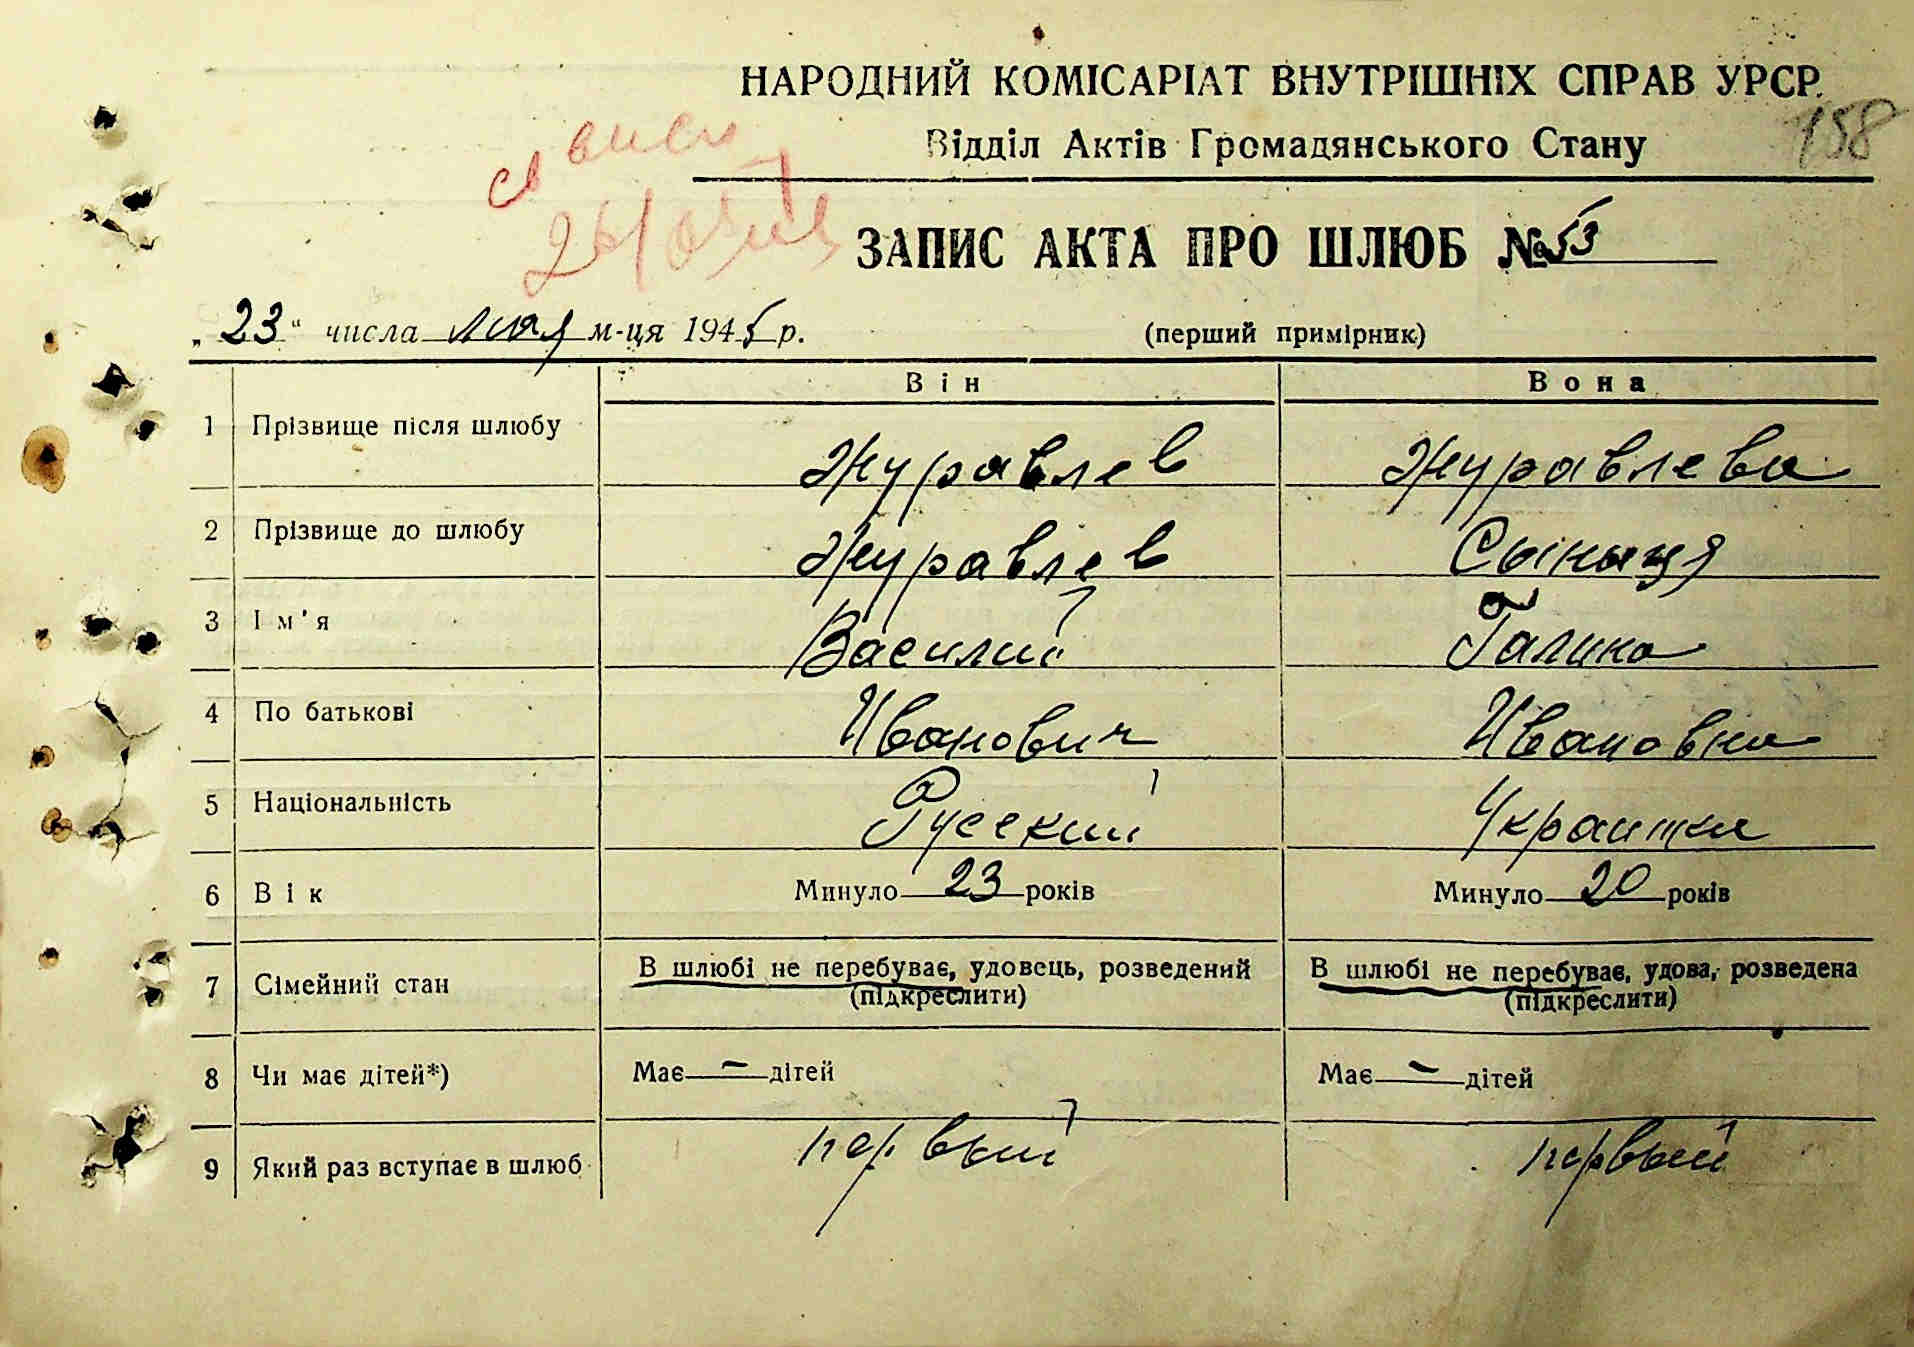 НАРОДНИЙ КОМІСАРІАТ ВНУТРІШНІХ СПРАВ УРСР
158
Відділ Актів Громадянського Стану
ЗАПИС АКТА ПРО ШЛЮБ № 53
„23" числа мая м-ця 1945 р. (перший примірник)
Він Вона
1 Прізвище після шлюбу Журавлев Журавлева
2 Прізвище до шлюбу Журавлев Сыныця
3 Ім'я Василий Галина
4 По батькові Иванович Ивановна
5 Національність Русский Украинка
6 Вік Минуло 23 років Минуло 20 років
7 Сімейний стан В шлюбі не перебуває, удовець, розведений В шлюбі не перебуває, удова, розведена
(підкреслити) (підкреслити)
8 Чи має дітей*) Має – дітей Має – дітей
9 Який раз вступає в шлюб первый первый